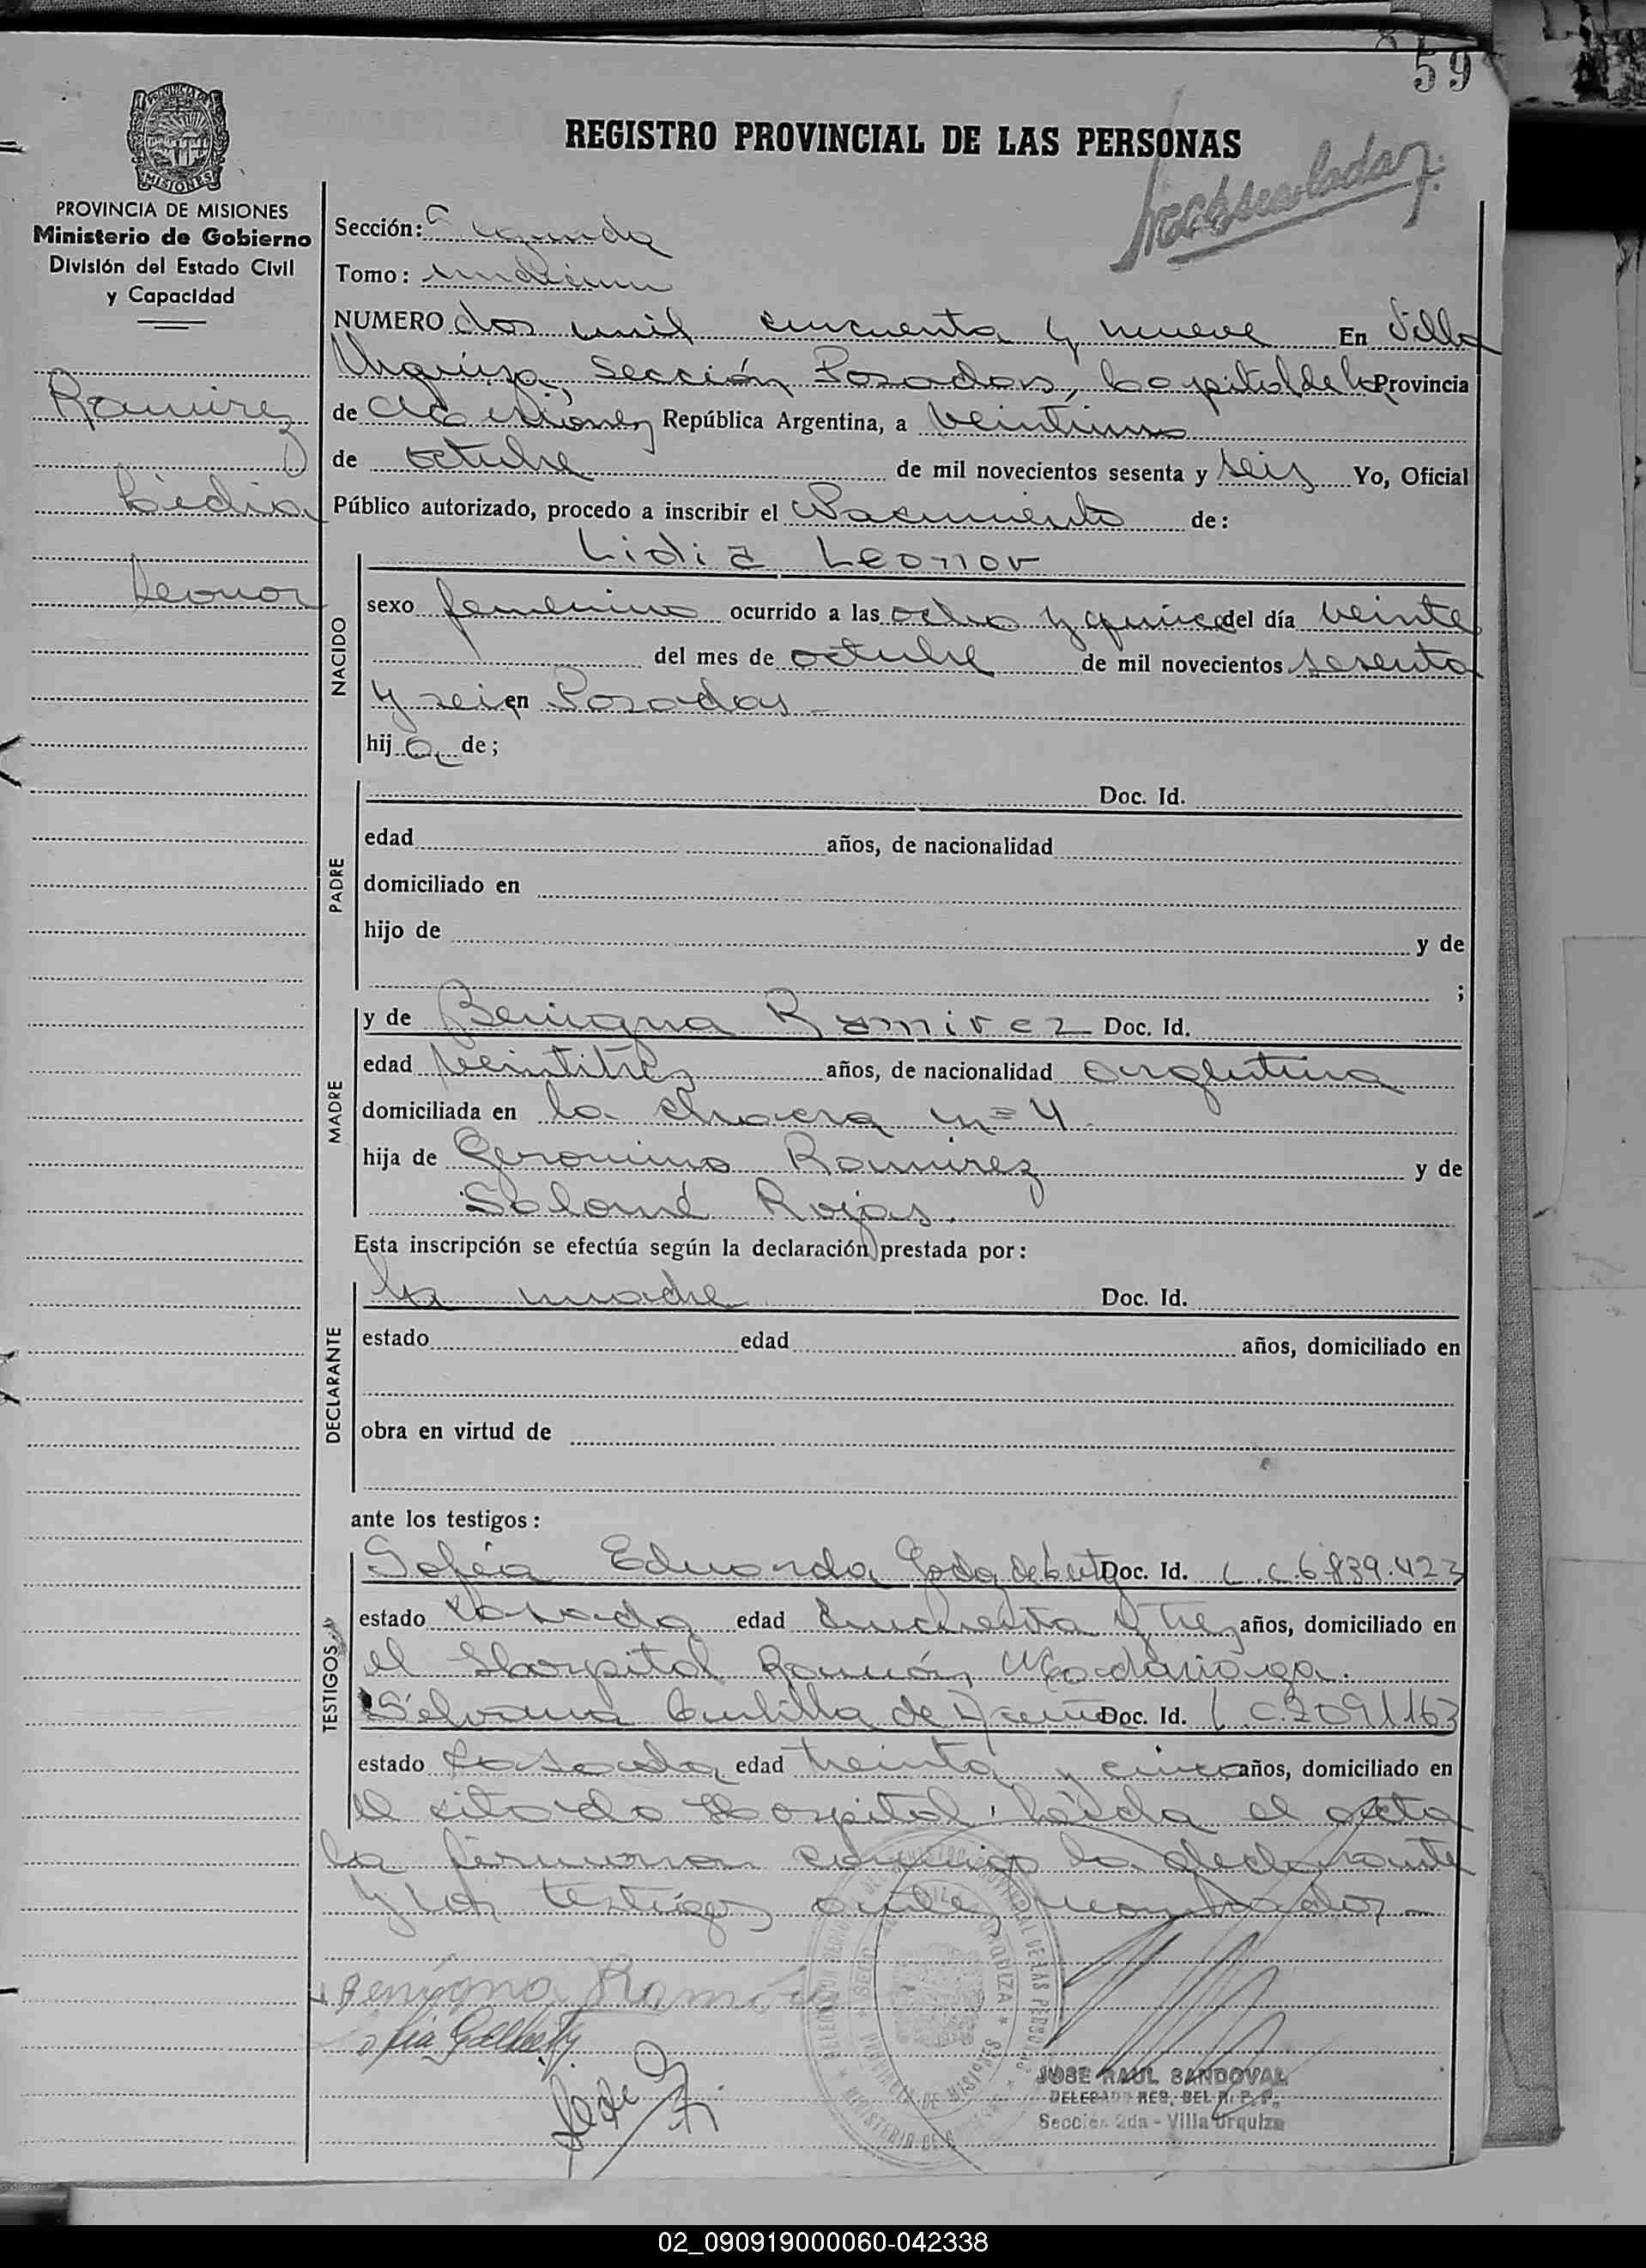 59
REGISTRO PROVINCIAL DE LAS PERSONAS
PROVINCIA DE MISIONES
Ministerio de Gobierno
División del Estado Civil
y Capacidad
Ramirez
Lidia
Leonor
Sección: Segunda
Tomo: undécimo
NUMERO dos mil cincuenta y nueve En Villa
Urquiza, Sección Posadas, Capital de la Provincia
de Misiones República Argentina, a veintiuno
de octubre de mil novecientos sesenta y seis Yo, Oficial
Público autorizado, procedo a inscribir el Nacimiento de:
NACIDO
Lidia Leonor
sexo femenino ocurrido a las ocho y quince del día veinte
del mes de octubre de mil novecientos sesenta
y seis en Posadas
hija de;
PADRE
Doc. Id.
edad años, de nacionalidad
domiciliado en
hijo de y de
;
MADRE
y de Benigna Ramirez Doc. Id.
edad veintitres años, de nacionalidad argentina
domiciliada en la chacra nº 4
hija de Geronimo Ramirez y de
Salomé Rojas.
Esta inscripción se efectúa según la declaración prestada por:
DECLARANTE
la madre Doc. Id.
estado edad años, domiciliado en
obra en virtud de
ante los testigos:
TESTIGOS
Sofia Eduarda Doc. Id. L.C 6.839.423
estado casada edad cincuenta y tres años, domiciliado en
el Hospital Ramón Madariaga.
Silvana de Doc. Id. L.C.2091163
estado casada edad treinta y cinco años, domiciliado en
el citado Hospital. Leida el acta
la firmaron conmigo la declarante
y los testigos antes nombrados
Benigna Ramirez
JOSE RAUL SANDOVAL
DELEGADO REG. DEL R. P. P.
Sección 2da - Villa Urquiza
02_090919000060-042338